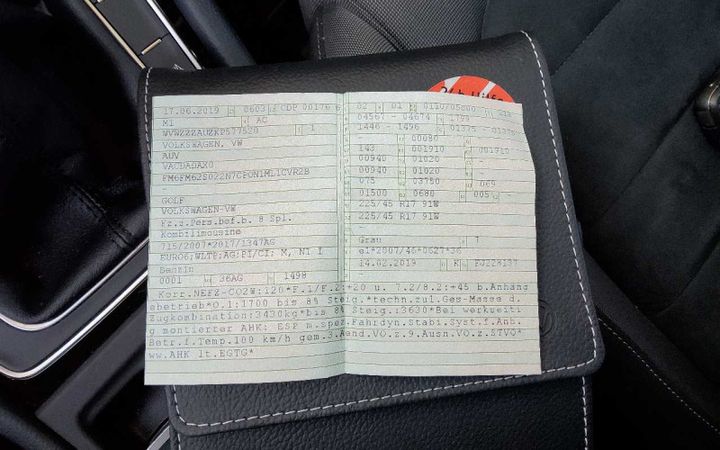 24h Hilfe
17.06.2019 0603 CDP 00176 6
M1 AC
WVWZZZAUZKP577520 1
VOLKSWAGEN, VW
AUV
VACDADAX0
FM6FM62S022N7CPON1ML1CVR2B
-
GOLF
VOLKSWAGEN-VW
Fz.z.Pers.bef.b. 8 Spl.
Kombilimousine
715/2007*2017/1347AG
EURO6;WLTP;AG;PI/CI; M, N1 I
Benzin
0001 36AG 1498
02 01 0110/05000
04567 - 04674 1799
1446 - 1496 01375 01375
- 00080 -
143 001910 001910
00940 01020 -
00940 01020 -
075 03750 069
01500 0680 005
225/45 R17 91W
225/45 R17 91W
-
-
Grau 7
e1*2007/46*0627*36
14.02.2019 K PJ228137
Korr.NEFZ-CO2W:120*F.1/F.2:+20 u. 7.2/8.2:+45 b.Anhäng
ebetrieb*O.1:1700 bis 8% Steig.*techn.zul.Ges-Masse d.
Zugkombination:3430kg*bis 8% Steig.:3630*Bei werkseiti
g montierter AHK: ESP m.spez.Fahrdyn.Stabi.Syst.f.Anh.
Betr.f.Temp.100 km/h gem.3.Aend.VO.z.9.Ausn.VO.z.STVO*
ww.AHK lt.EGTG*